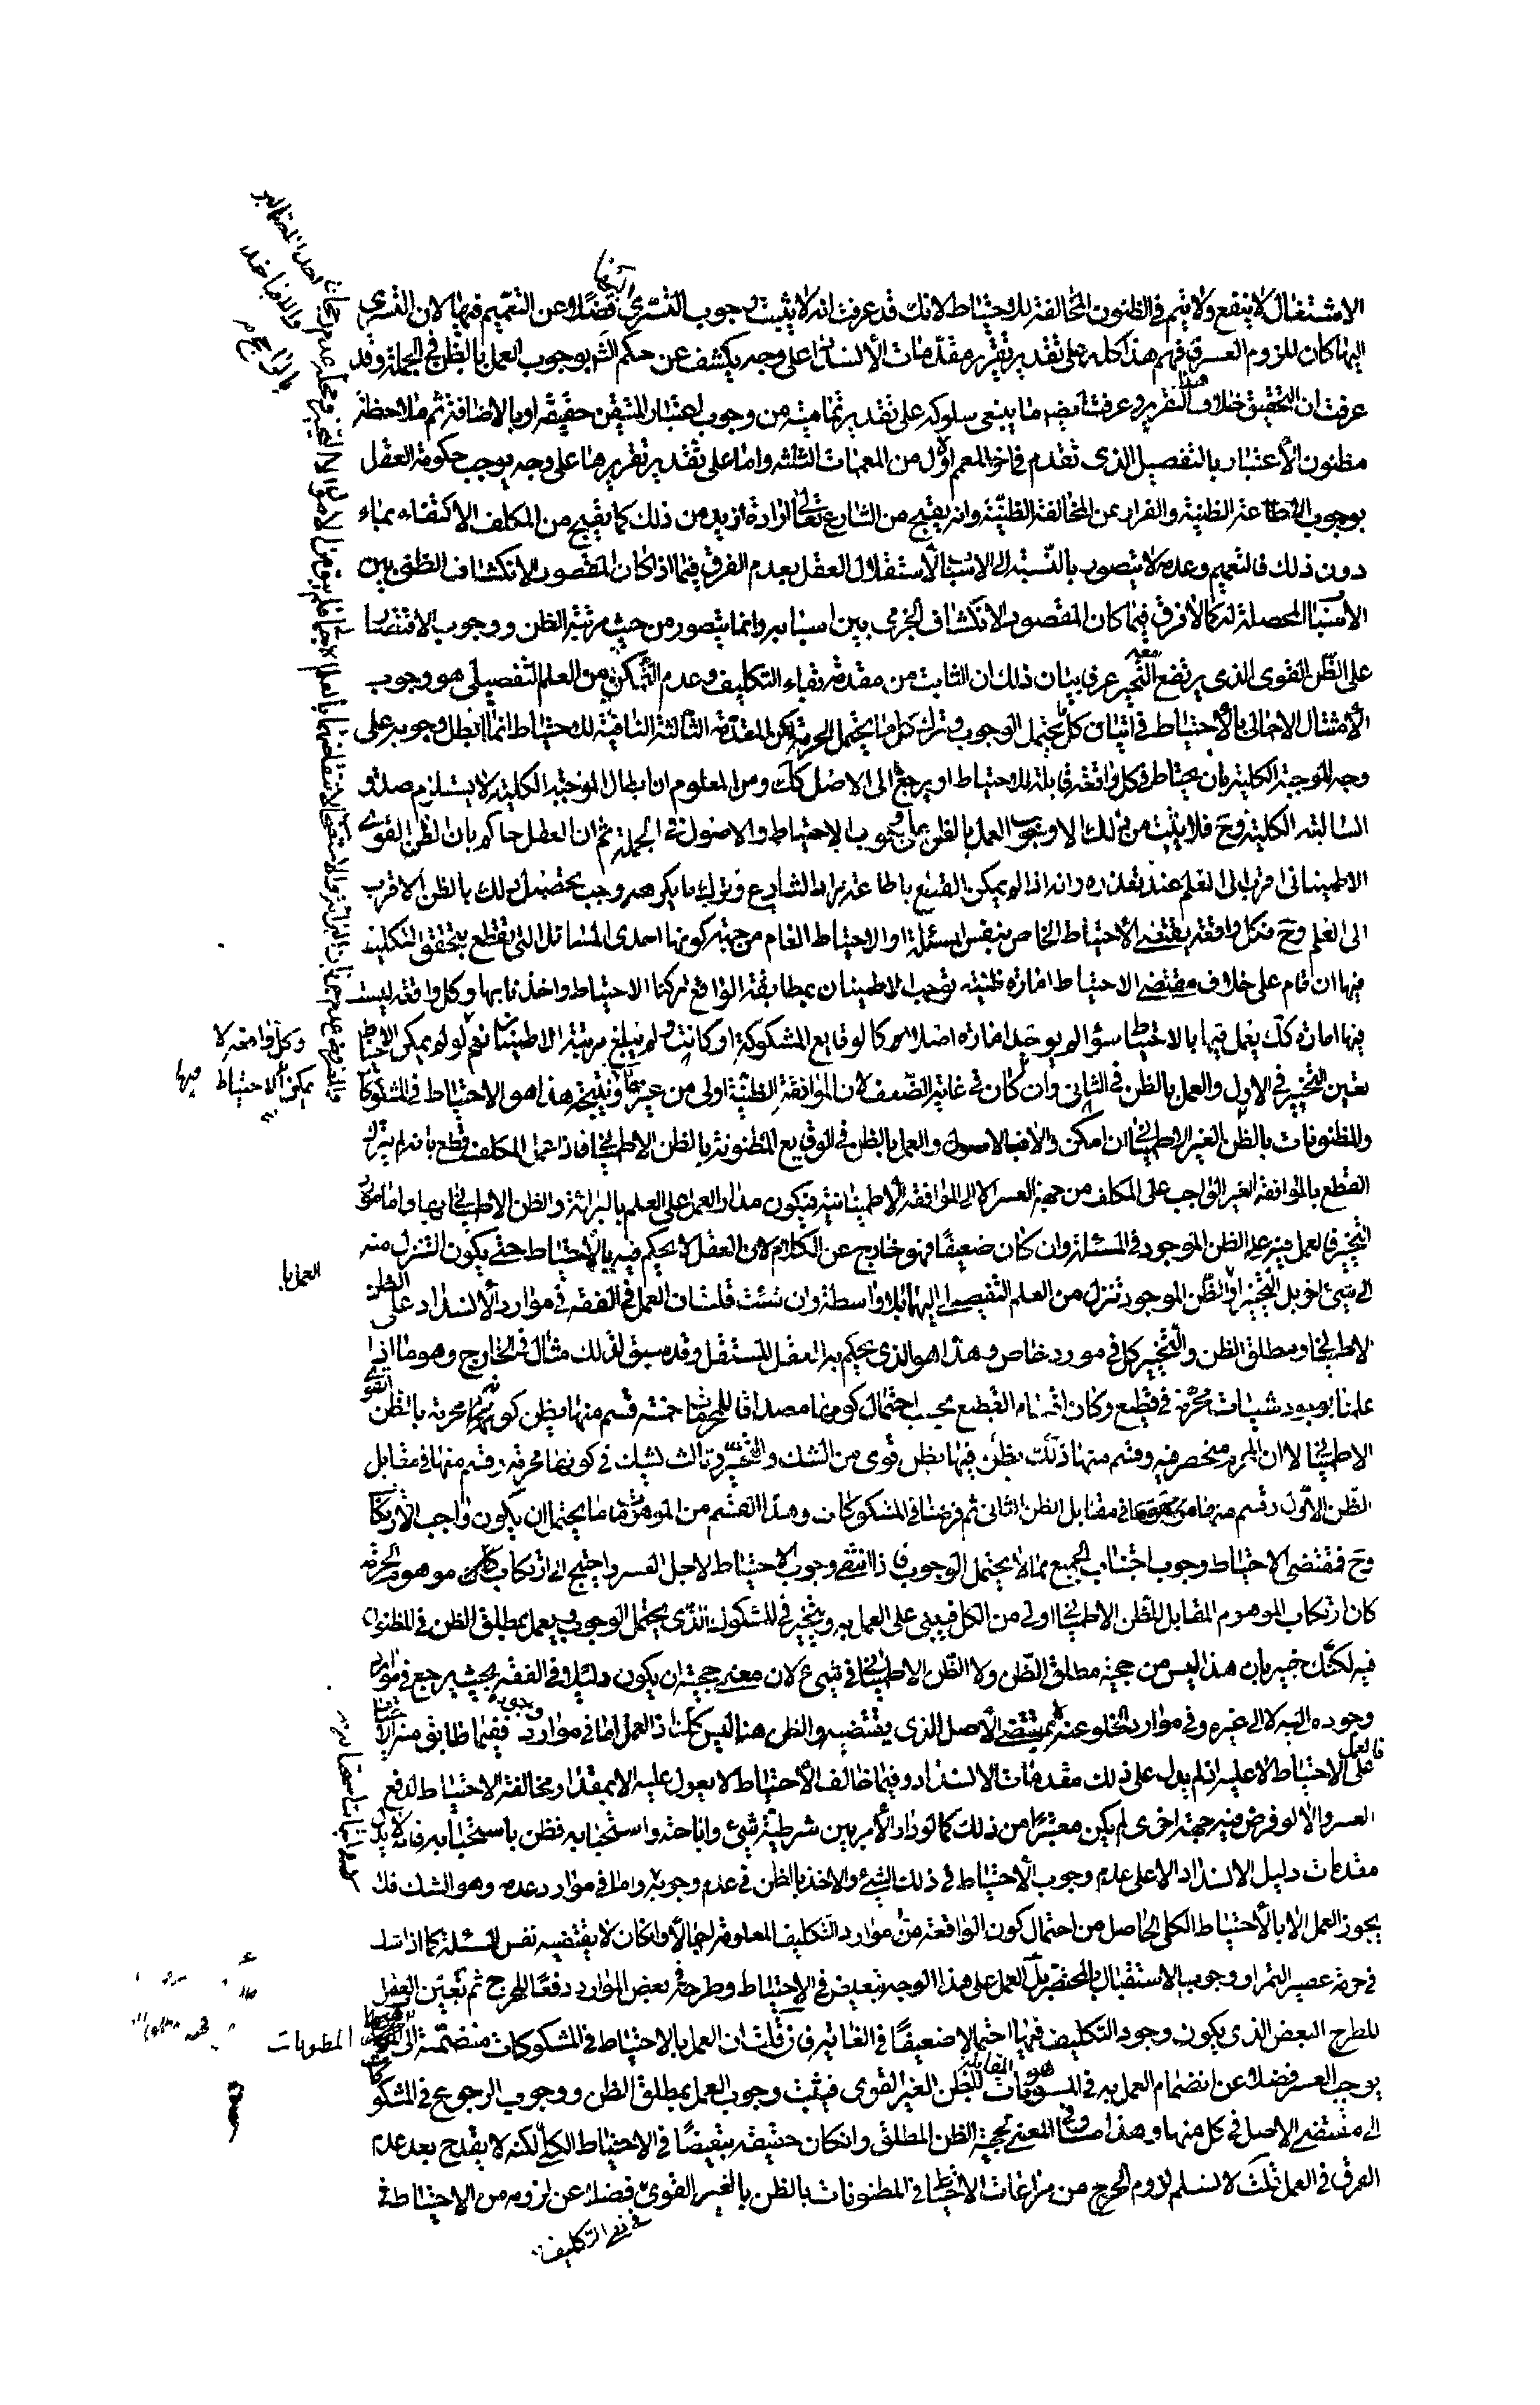 الاشتغال لا ينفع ولا يتم في الظنون المخالفة للاحتياط لانك قد عرفت انه لا يثبت وجوب التسري اليها فضلا عن التعميم فيها لان التسري
اليها كان للزوم العسر فافهم هذا كله على تقدير تقرير مقدمات الانسداد على وجه يكشف عن حكم الشارع بوجوب العمل بالظن في الجملة وقد
عرفت ان التحقيق خلاف هذا التقرير وعرفت ايضا ما ينبغي سلوكه على تقدير تماميته من وجوب اعتبار المتيقن حقيقة او بالاضافة ثم ملاحظة
مظنون الاعتبار بالتفصيل الذي تقدم في اخر المعمم الاول من المعممات الثلثة واما على تقدير تقريرها على وجه يوجب حكومة العقل
بوجوب الاطاعة الظنية والفرار عن المخالفة الظنية وانه يقبح من الشارع تعالى ارادة ازيد من ذلك كما يقبح من المكلف الاكتفاء بما
دون ذلك فالتعميم وعدمه لا يتصور بالنسبة الى الاسباب لاستقلال العقل بعدم الفرق فيما اذا كان المقصود الانكشاف الظني بين
الاسباب المحصلة له كما لا فرق فيما كان المقصود الانكشاف الجزمي بين اسبابه وانما يتصور من حيث مرتبة الظن ووجوب الاقتصار
على الظن القوي الذي يرتفع معه التحير عرفا بيان ذلك ان الثابت من مقدمة بقاء التكليف وعدم التمكن من العلم التفصيلي هو وجوب
الامتثال الاجمالي بالاحتياط في اتيان كل ما يحتمل الوجوب وترك كل ما يحتمل الحرمة لكن المقدمة الثالثة النافية للاحتياط انما ابطل وجوبه على
وجه الموجبة الكلية بان يحتاط في كل واقعة قابلة للاحتياط او يرجع الى الاصل كك ومن المعلوم ان ابطال الموجبة الكلية لا يستلزم صدق
السالبة الكلية وح فلا يثبت من ذلك الا وجوب العمل بالظن على خلاف الاحتياط والاصول في الجملة ثم ان العقل حاكم بان الظن القوي
الاطميناني اقرب الى العلم عند تعذره وانه اذا لم يمكن القطع باطاعة مراد الشارع وترك ما يكرهه وجب تحصيل ذلك بالظن الاقرب
الى العلم وح فكل واقعة يقتضي الاحتياط الخاص بنفس المسئلة او الاحتياط العام من جهة كونها احدى المسائل التي نقطع بتحقق التكليف
فيها ان قام على خلاف مقتضى الاحتياط امارة ظنية توجب الاطمينان بمطابقة الواقع تركنا الاحتياط واخذنا بها وكل واقعة ليست
فيها امارة كك يعمل فيها بالاحتياط سواء لم يوجد امارة اصلا كالوقايع المشكوكة او كانت ولم يبلغ مرتبة الاطمينان نعم لو لم يمكن الاحتياط
تعين التخيير في الاول والعمل بالظن في الثاني وان كان في غاية الضعف لان الموافقة الظنية اولى من غيرها ونتيجة هذا هو الاحتياط في المشكوكات
والمظنونات بالظن الغير الاطميناني ان امكن والا فبالاصول والعمل بالظن في الوقايع المظنونة بالظن الاطميناني فاذا عمل المكلف قطع بانه لم يترك
القطع بالموافقة الغير الواجب على المكلف من جهة العسر الا الى الموافقة الاطمينانية فيكون مدار العمل على العلم بالبرائة والظن الاطميناني بها واما مورد
التخيير فالعمل فيه على الظن الموجود في المسئلة وان كان ضعيفا فهو خارج عن الكلام لان العقل لا يحكم فيه بالاحتياط حتى يكون التنزل منه
الى شيء اخر بل التخيير او العمل بالظن الموجود تنزل من العلم التفصيلي اليهما بلا واسطة وان شئت قلت ان العمل في الفقه في موارد الانسداد على الظن
الاطميناني ومطلق الظن والتخيير كل في مورد خاص وهذا هو الذي يحكم به العقل المستقل وقد سبق لذلك مثال في الخارج وهو ما اذا
علمنا بوجود شياة محرمة في قطيع وكان اقسام القطيع بحسب احتمال كونها مصداقا للمحرمات خمسة قسم منها يظن كونها محرمة بالظن القوي
الاطميناني لا ان المحرم منحصر فيه وقسم منها ذلك يظن فيها بظن قوي من الشك والتحير وثالث يشك في كونها محرمة وقسم منها في مقابل
الظن الاول وقسم منها في مقابل الظن الثاني ثم فرضنا في المشكوكات وهذا القسم من الموهومات ما يحتمل ان يكون واجب الارتكاب
وح فمقتضى الاحتياط وجوب اجتناب الجميع مما لا يحتمل الوجوب فاذا انتفى وجوب الاحتياط لاجل العسر واحتيج الى ارتكاب موهوم الحرمة
كان ارتكاب الموهوم المقابل للظن الاطميناني اولى من الكل فيبنى على العمل به ويتخير في المشكوك الذي يحتمل الوجوب ويعمل بمطلق الظن في المظنون
فيه لكنك خبير بان هذا ليس من حجية مطلق الظن ولا الظن الاطميناني في شيء لان معنى حجيته ان يكون دليلا في الفقه بحيث يرجع في موارد
وجوده اليه لا الى غيره وفي موارد الخلو عنه بمقتضى الاصل الذي يقتضيه والظن هنا ليس كك اذ العمل اما في موارد وجوده ففيما طابق منه الاحتياط
فالعمل على الاحتياط لا عليه اذ لم يدل على ذلك مقدمات الانسداد وفيما خالف الاحتياط لا يعول عليه الا بمقدار مخالفة الاحتياط لدفع
العسر والا فلو فرض فيه جهة اخرى لم يكن معتبرا من ذلك كما لو دار الامر بين شرطية شيء واباحته واستحبابه فظن باستحبابه فانه لا يدل
مقدمات دليل الانسداد الا على عدم وجوب الاحتياط في ذلك الشيء والاخذ بالظن في عدم وجوبه واما في موارد عدمه وهو الشك فلا
يجوز العمل الا بالاحتياط الكلي الحاصل من احتمال كون الواقعة من موارد التكليف المعلومة اجمالا وان كان لا يقتضيه نفس المسئلة كما اذا شك
في حرمة عصير التمر او وجوب الاستقبال بالمحتضر بل العمل على هذا الوجه تبعيض في الاحتياط وطرحه في بعض الموارد دفعا للحرج ثم تعين العقل
للطرح البعض الذي يكون وجود التكليف فيها احتمالا ضعيفا في الغاية فان قلت ان العمل بالاحتياط في المشكوكات منضمة الى المظنونات
يوجب العسر فضلا عن انضمام العمل به في الموهومات المقابلة للظن الغير القوي فيثبت وجوب العمل بمطلق الظن ووجوب الرجوع في المشكوكات
الى مقتضى الاصل في كل منها وهذا مساوق في المعنى لحجية الظن المطلق وان كان حقيقة تبعيضا في الاحتياط الكلي لكنه لا يقدح بعد عدم
الفرق في العمل قلت لا نسلم لزوم الحرج من مراعات الاحتياط في المظنونات بالظن الغير القوي فضلا عن لزومه من الاحتياط في
وكل واقعة لا
يمكن الاحتياط فيها
العمل با